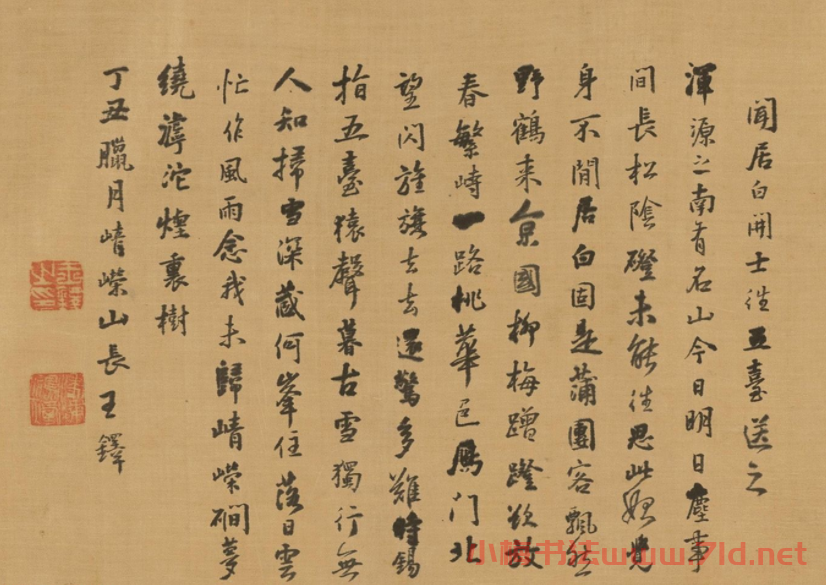 聞居白開士往五臺送之
渾源之南有名山今日明日塵事
間長松陰磴未能往思此頗覺
身不閒居白固是蒲團客飄然
野鶴來京國柳梅蹭蹬欲放
春繁峙一路桃華邑鴈門北
望閃旌旗去去還驚多難時錫
指五臺猿聲暮古雪獨行無
人知掃雪深藏何峯住落日雲
忙作風雨念我未歸崝嶸磵夢
繞滹沱煙裏樹
丁丑臘月崝嶸山長王
鐸
小楷书法www.7ld.net